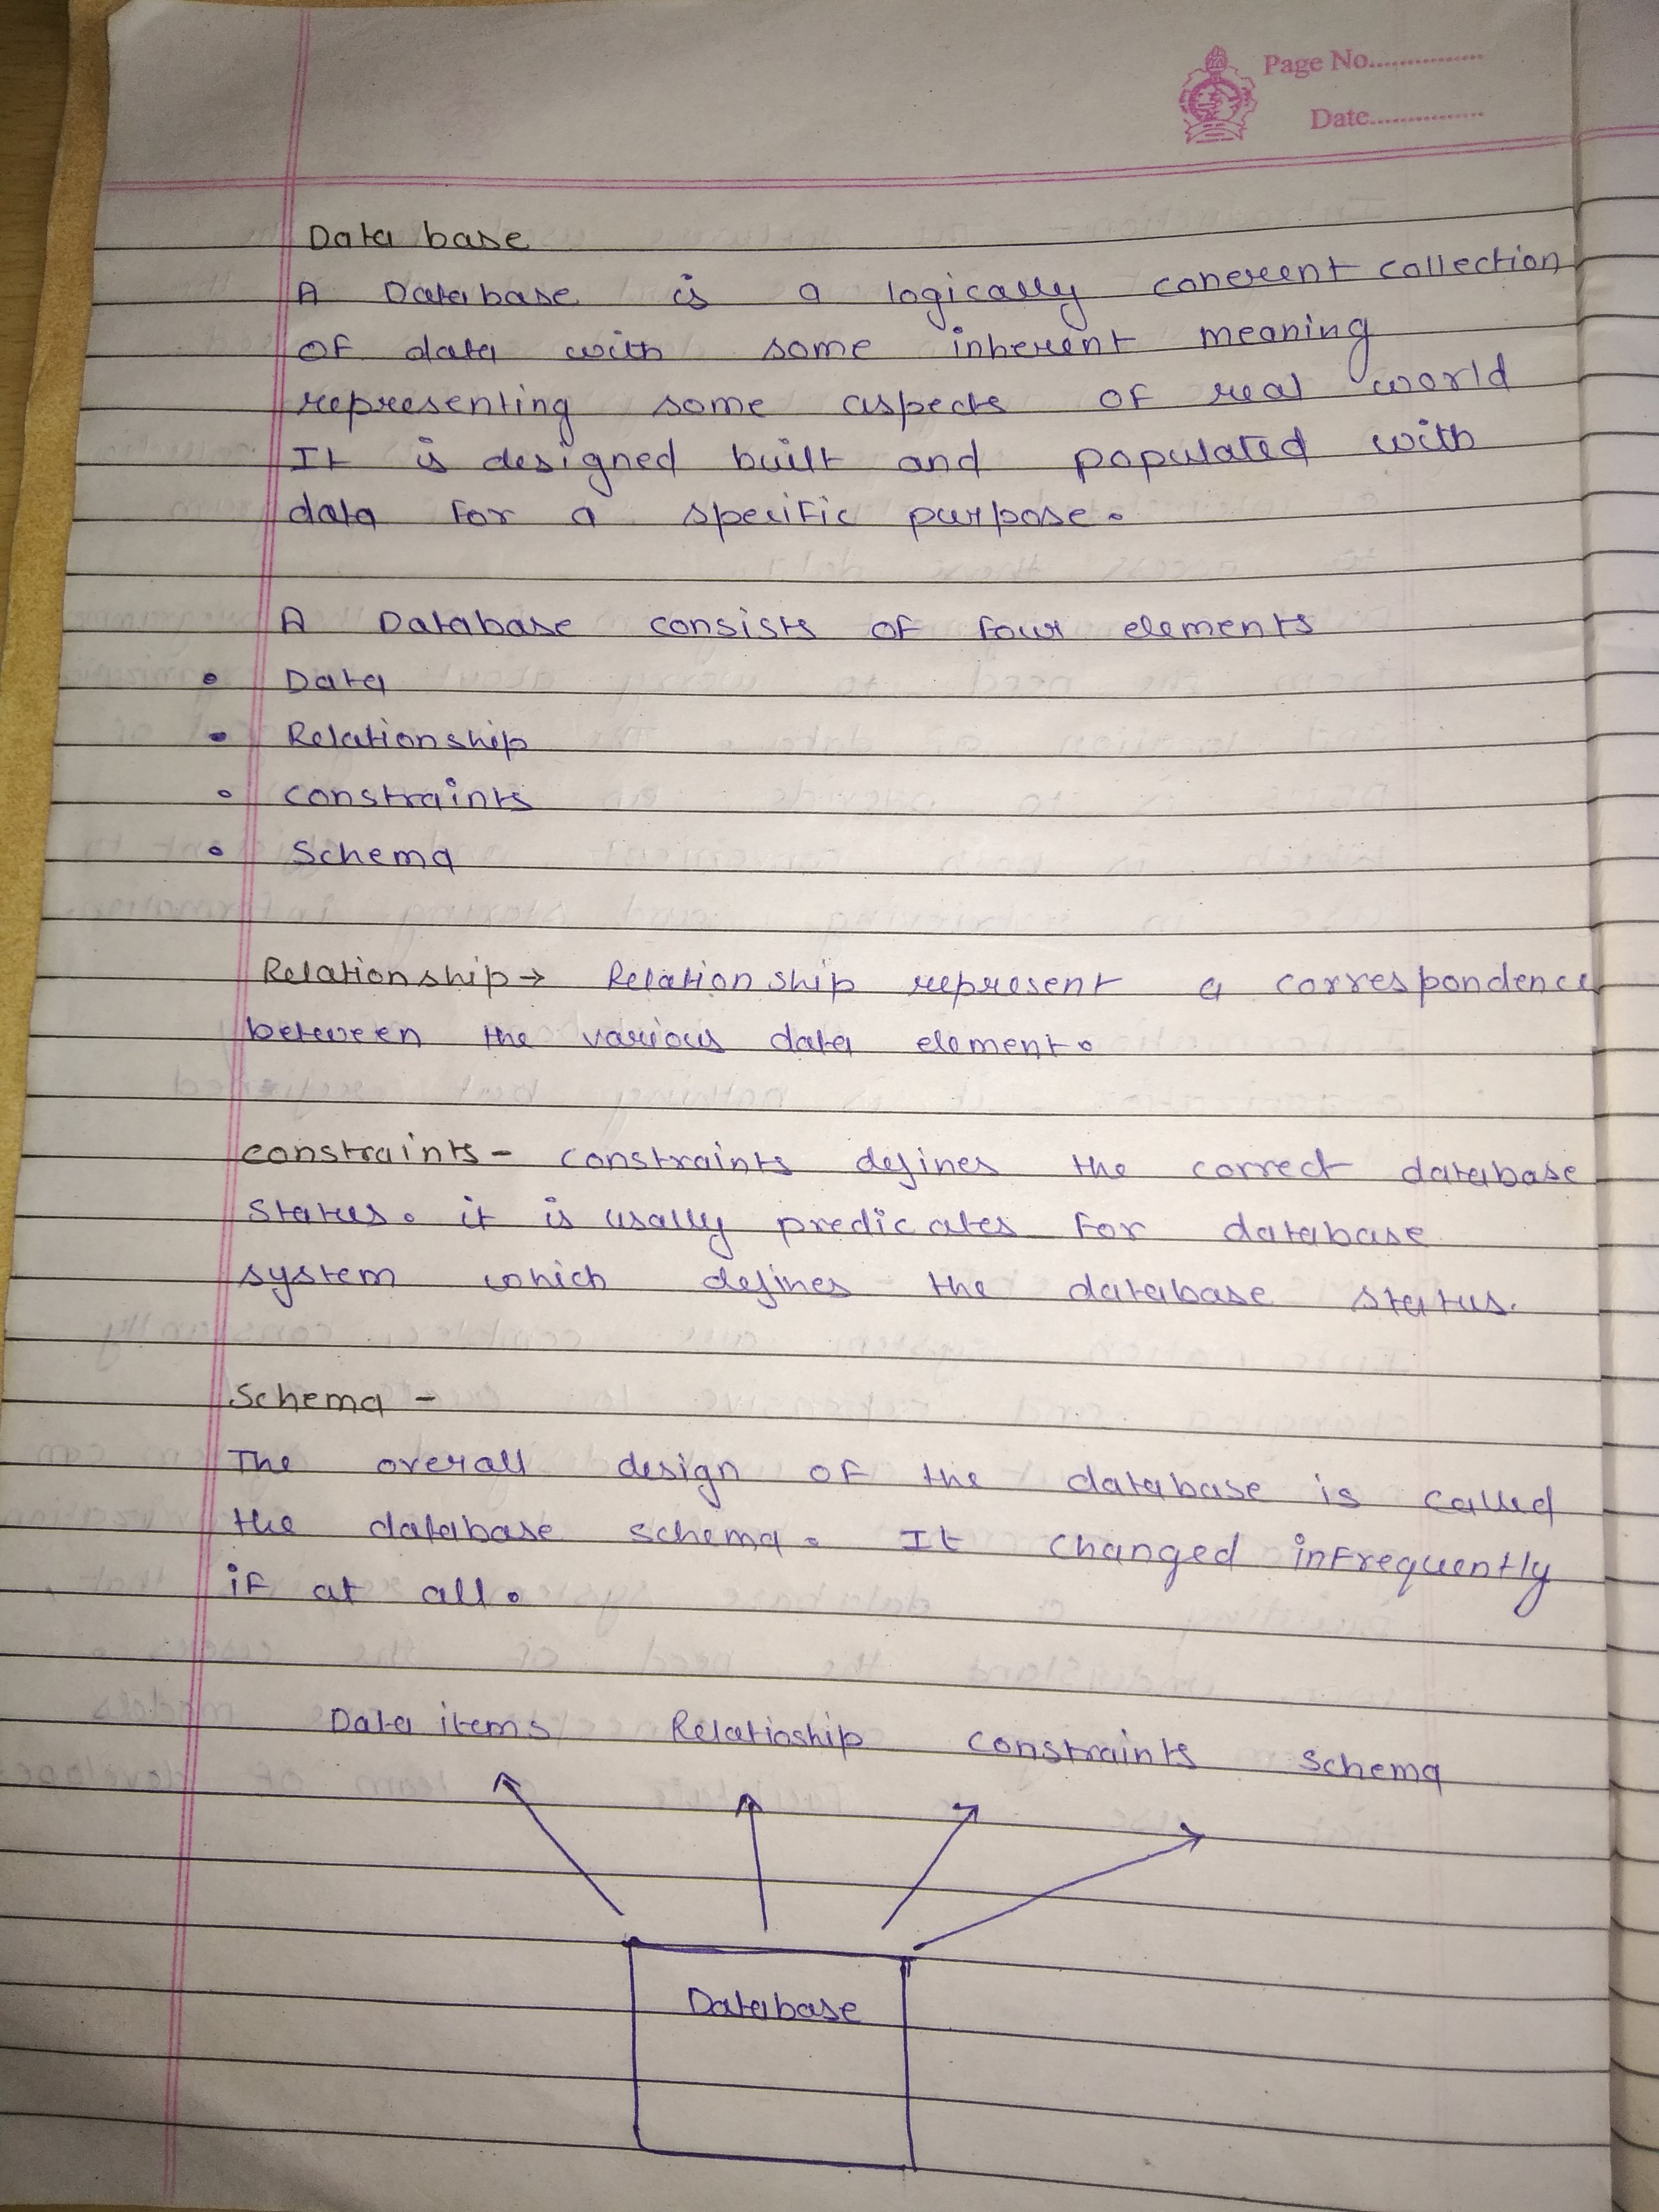 Page No...............
Date...............
Data base
A Database is a logically coherent collection
of data with some inherent meaning
representing some aspects of real world
It is designed built and populated with
data for a specific purpose.
A Database consists of four elements
• Data
• Relationship
• constraints
• Schema
Relationship → Relationship represent a correspondence
between the various data element.
constraints - constraints defines the correct database
status. it is usally predicates for database
system which defines the database status.
Schema -
The overall design of the database is called
the database schema. It changed infrequently
if at all.
Data items Relatioship constraints schema
Database